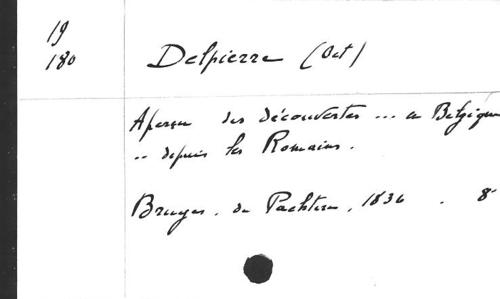 19
180
Delpierre (Oct)
Aperçu des découvertes ... en Belgique
.. depuis les Romains.
Bruges. de Pachtere, 1836. 8°